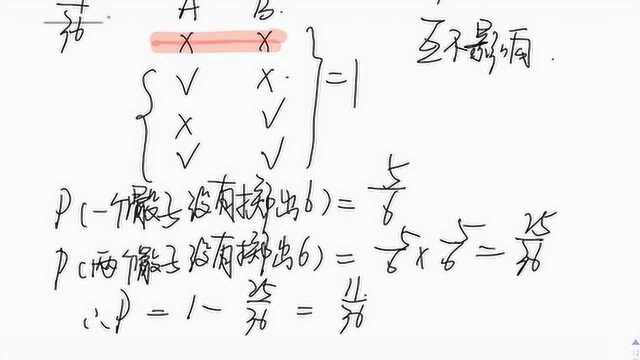 A B.
/36
× × 互不影响.
√ ×.
× √
√ √
=1
P(一个骰子没有掷出6)=5/6
P(两个骰子没有掷出6)=5/6×5/6=25/36
∴P=1-25/36=11/36